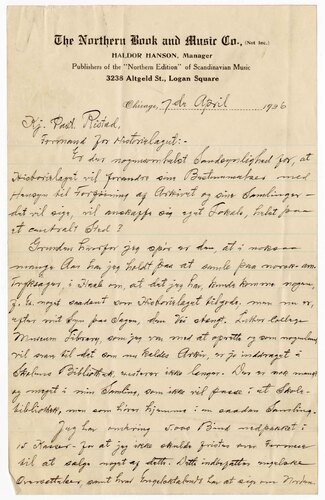 The Northern Book and Music Co., (Not Inc.)
HALDOR HANSON, Manager
Publishers of the "Northern Edition" of Scandinavian Music
3238 Altgeld St., Logan Square
Chicago, 7de April 1926
Kj. Past. Ristad,
Formand for Historielaget:-
Er der nogensomhelst Sandsynlighed for, at
Historielaget vil forandre sine Bestemmelser med
Hensyn til Forsegling af Arkivet og sine Samlinger -
det vil sige, vil anskaffe sig eget Lokale, helst paa
et centralt Sted?
Grunden hvorfor jeg spør er den, at i noksaa
mange Aar har jeg holdt paa at samle paa norsk-am.
Tryksager, i Haab om, at det jeg har, kunde komme nogen,
f. Ex. noget saadant som Historielaget tilgode, man nu er,
efter mit Syn paa Sagen, den Vei stengt. Luther College
Museum Library, som jeg var med at oprette og som nogenlunde
vil svar til det som nu kaldes Arkiv, er jo inddraget i
Skolens Bibliothek, existerer ikke længer. Der er nok mang
og meget i min Samling, som ikke vil passe i et Skole-
bibliothek, men som hører hjemme i en saadan Samling.
Jeg har omkring 5,000 Bind nedpakket i
15 Kasser - for at jeg ikke skulde fristes over Formue
til at sælge noget af dette. Dette indbefatter engelske
Oversættelser, samt hvad Engelsktalende har at sige om Norden